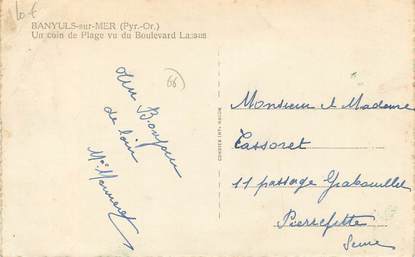 10 €
BANYULS-sur-MER (Pyr.-Or.)
Un coin de Plage vu du Boulevard Lassus
66
Un Bonjour
de loin
Monsieur et Madame
Tassoret
11 passage
Pierrefitte
Seine